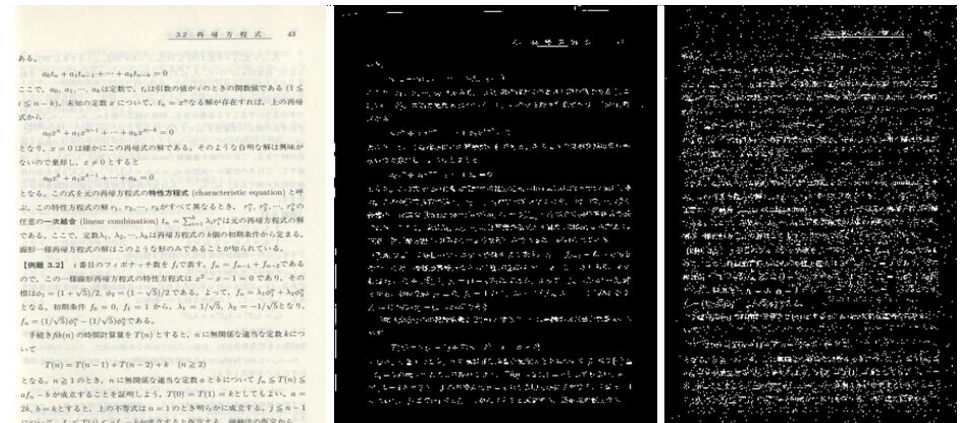 3.2 再帰方程式 43
ある。
a₀tₙ + a₁tₙ₋₁ + ⋯ + aₖtₙ₋ₖ = 0
ここで, a₀, a₁, ⋯, aₖは定数で, tᵢは引数の値が i のときの関数値である (1 ≦
i ≦ n − k)。未知の定数 x について, tₙ = xⁿなる解が存在すれば, 上の再帰
式から
a₀xⁿ + a₁xⁿ⁻¹ + ⋯ + aₖxⁿ⁻ᵏ = 0
となり, x = 0 は確かにこの再帰式の解である。そのような自明な解は興味が
ないので棄却し, x ≠ 0 とすると
a₀xᵏ + a₁xᵏ⁻¹ + ⋯ + aₖ = 0
となる。この式を元の再帰方程式の特性方程式 (characteristic equation) と呼
ぶ。この特性方程式の解 r₁, r₂, ⋯, rₖがすべて異なるとき, r₁ⁿ, r₂ⁿ, ⋯, rₖⁿの
任意の一次結合 (linear combination) tₙ = ∑ᵏᵢ₌₁ λᵢrᵢⁿは元の再帰方程式の解
である。ここで, 定数λ₁, λ₂, ⋯, λₖは再帰方程式のk個の初期条件から定まる。
線形一様再帰方程式の解はこのような形のみであることが知られている。
【例題 3.2】 i 番目のフィボナッチ数を fᵢで表す。fₙ = fₙ₋₁ + fₙ₋₂である
ので, この一様線形再帰方程式の特性方程式は x² − x − 1 = 0 であり, その
根はφ₁ = (1 + √5)/2, φ₂ = (1 − √5)/2である。よって, fₙ = λ₁φ₁ⁿ + λ₂φ₂ⁿ
となる。初期条件 f₀ = 0, f₁ = 1 から, λ₁ = 1/√5, λ₂ = −1/√5となり,
fₙ = (1/√5)φ₁ⁿ − (1/√5)φ₂ⁿである。
手続きfib(n) の時間計算量を T(n) とすると, n に無関係な適当な定数 k につ
いて
T(n) = T(n − 1) + T(n − 2) + k (n ≧ 2)
となる。n ≧ 1 のとき, n に無関係な適当な定数 a と b について fₙ ≦ T(n) ≦
afₙ − b が成立することを証明しよう。T(0) = T(1) = k としてもよい。a =
2k, b = k とすると, 上の不等式は n = 1 のとき明らかに成立する。j ≦ n − 1